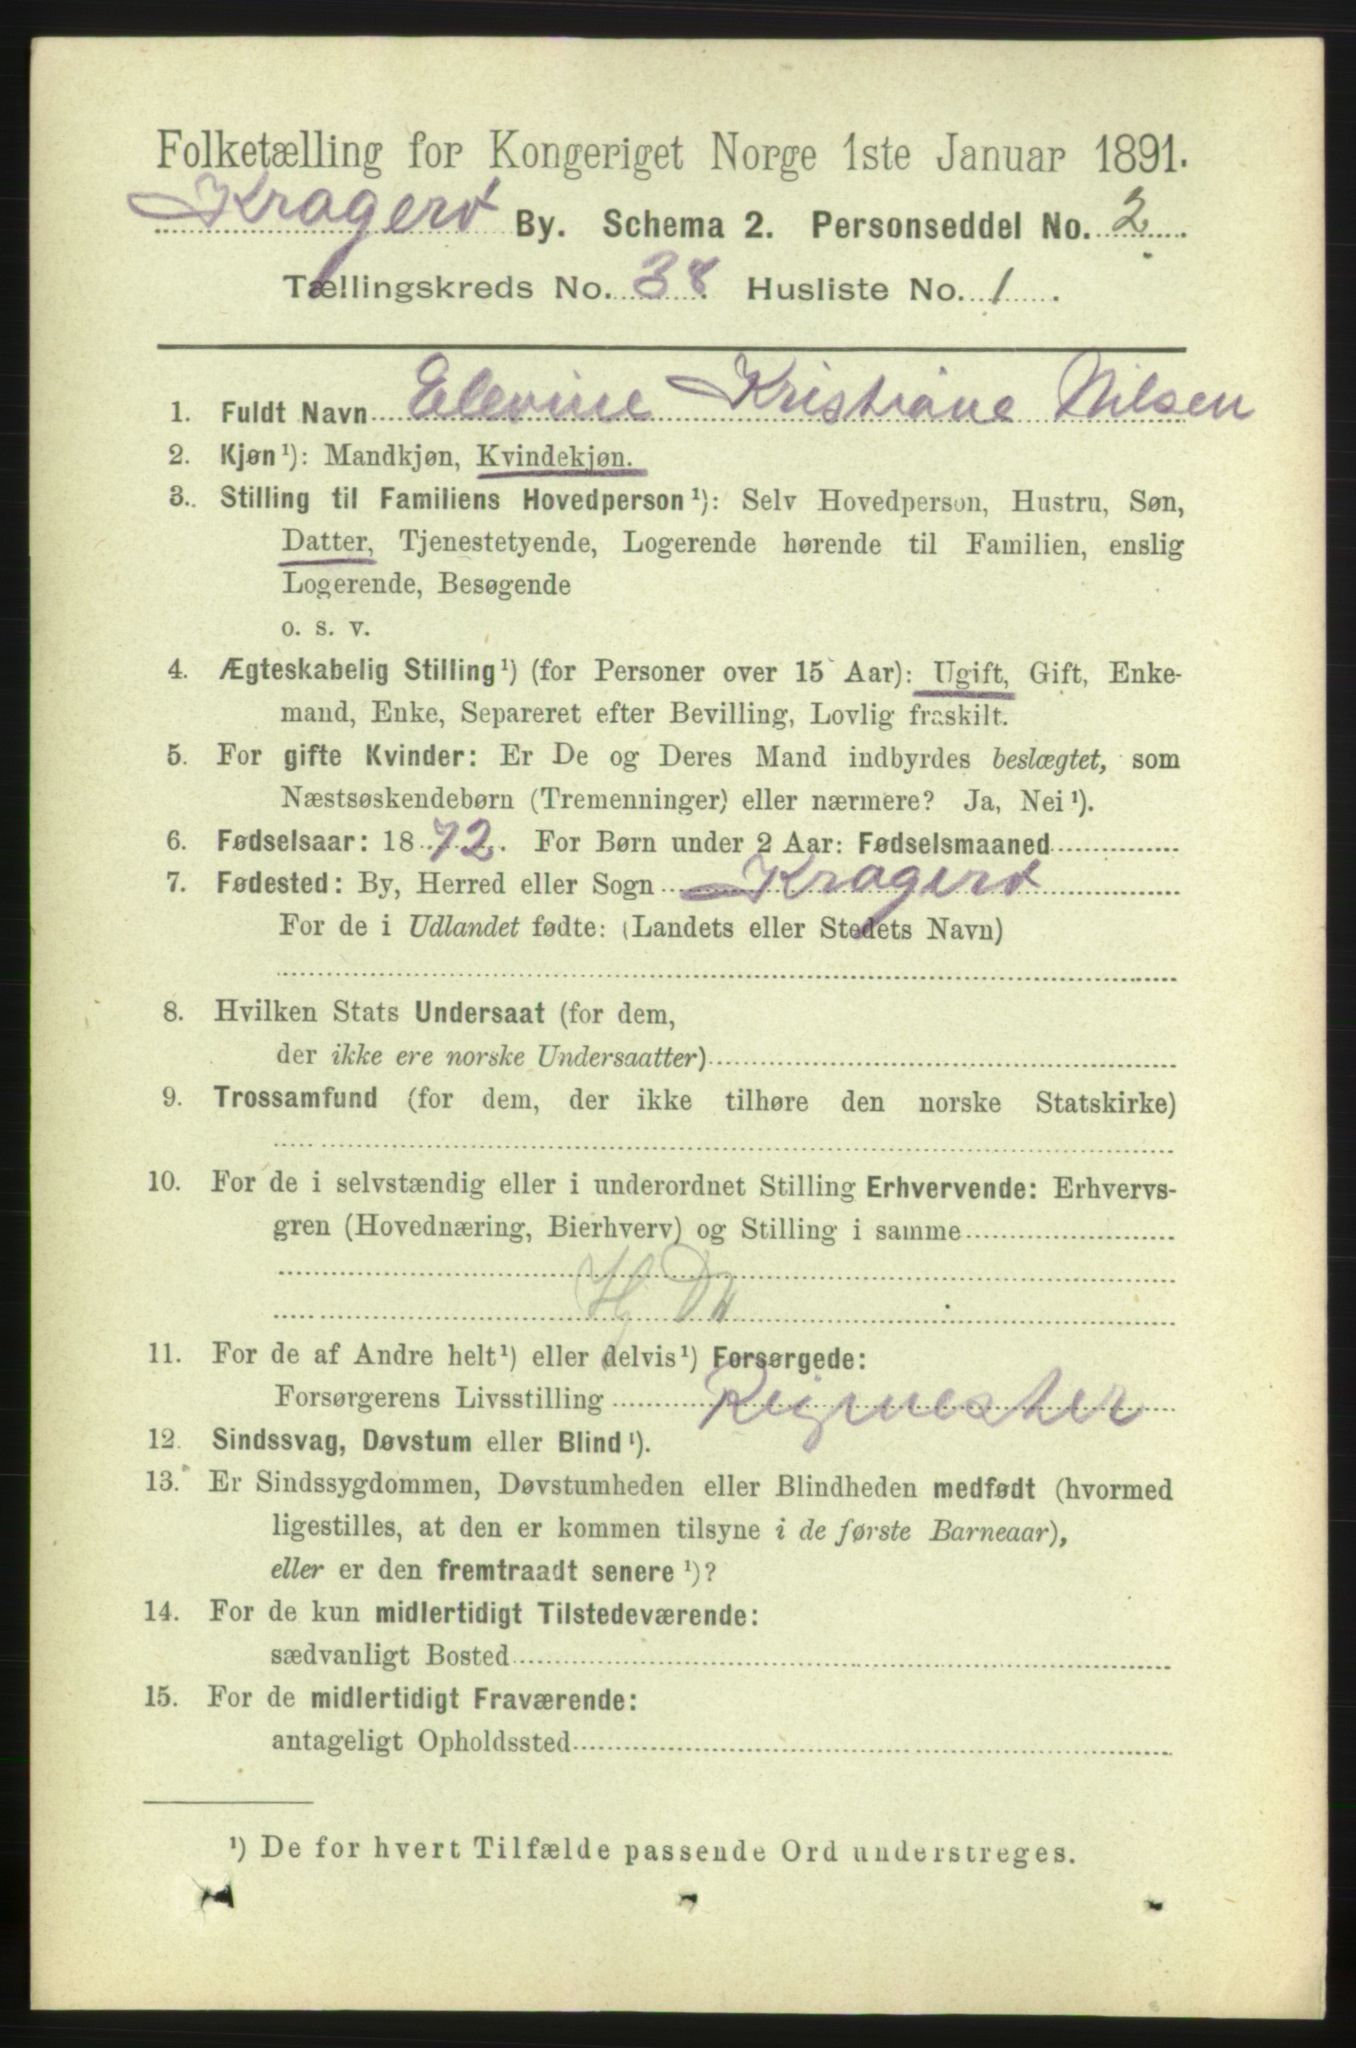 Folketælling for Kongeriget Norge 1ste Januar 1891.
Kragerø By. Schema 2. Personseddel No. 2
Tællingskreds No. 38. Husliste No. 1.
1. Fuldt Navn Elevine Kristiane Nilsen
2. Kjøn¹): Mandkjøn, Kvindekjøn.
3. Stilling til Familiens Hovedperson¹): Selv Hovedperson, Hustru, Søn,
Datter, Tjenestetyende, Logerende hørende til Familien, enslig
Logerende, Besøgende
o. s. v.
4. Ægteskabelig Stilling¹) (for Personer over 15 Aar): Ugift, Gift, Enke-
mand, Enke, Separeret efter Bevilling, Lovlig fraskilt.
5. For gifte Kvinder: Er De og Deres Mand indbyrdes beslægtet, som
Næstsøskendebørn (Tremenninger) eller nærmere? Ja, Nei¹).
6. Fødselsaar: 1872. For Børn under 2 Aar: Fødselsmaaned
7. Fødested: By, Herred eller Sogn Kragerø
For de i Udlandet fødte: (Landets eller Stedets Navn)
8. Hvilken Stats Undersaat (for dem,
der ikke ere norske Undersaatter)
9. Trossamfund (for dem, der ikke tilhøre den norske Statskirke)
10. For de i selvstændig eller i underordnet Stilling Erhvervende: Erhvervs-
gren (Hovednæring, Bierhverv) og Stilling i samme
11. For de af Andre helt¹) eller delvis¹) Forsørgede:
Forsørgerens Livsstilling Reigmester
12. Sindssvag, Døvstum eller Blind¹).
13. Er Sindssygdommen, Døvstumheden eller Blindheden medfødt (hvormed
ligestilles, at den er kommen tilsyne i de første Barneaar),
eller er den fremtraadt senere¹)?
14. For de kun midlertidigt Tilstedeværende:
sædvanligt Bosted
15. For de midlertidigt Fraværende:
antageligt Opholdssted
¹) De for hvert Tilfælde passende Ord understreges.